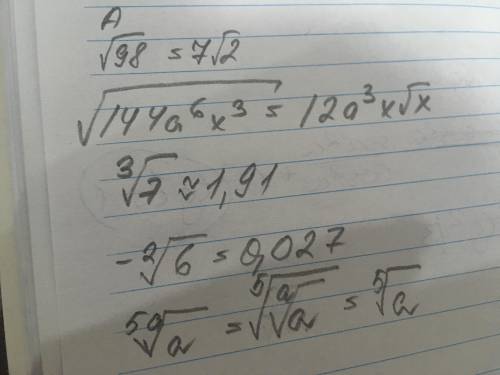 A
√98 = 7√2
√144a⁶x³ = 12a³x√x
³√7 ≈ 1,91
-³√6 = 0,027
⁵ᵃ√a = ⁵√ᵃ√a = ⁵√a